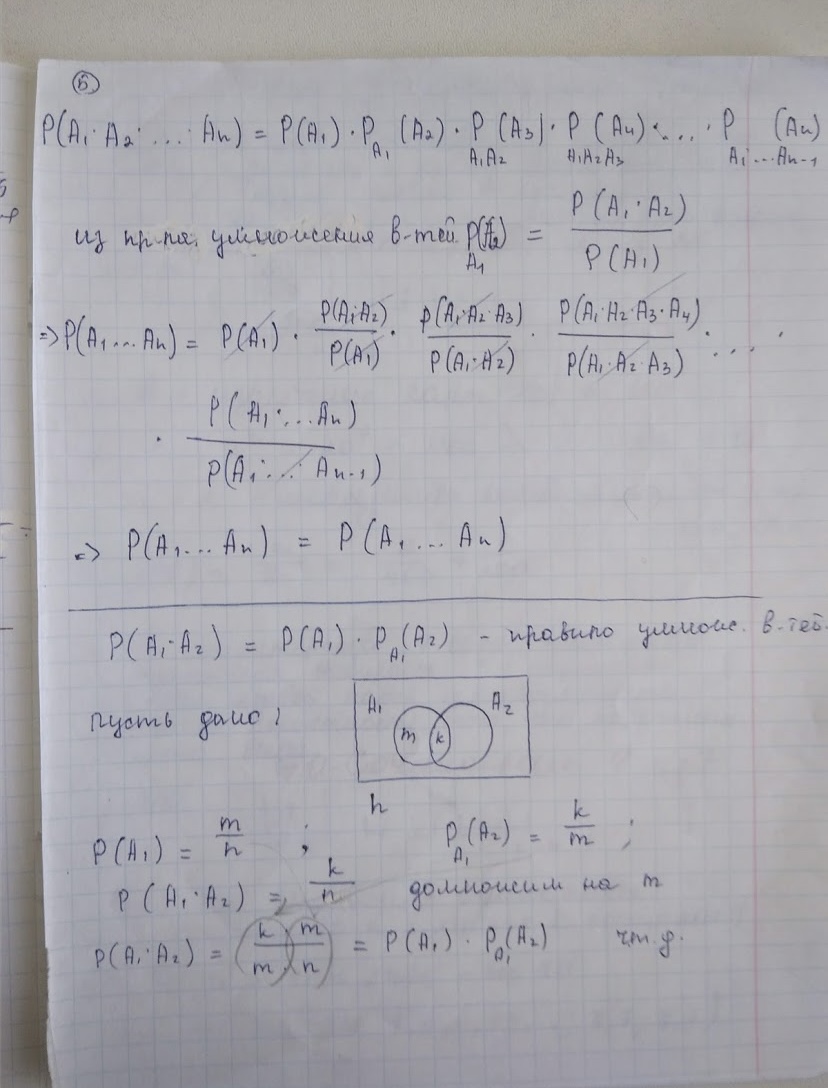 5
P(A₁·A₂·...·Aₙ) = P(A₁)·P_A₁(A₂)·P_A₁A₂(A₃)·P_A₁A₂A₃(A₄)·...·P_A₁...Aₙ₋₁(Aₙ)
из пр-ла умножения в-тей P_A₁(A₂) = P(A₁·A₂) / P(A₁)
=> P(A₁...Aₙ) = P(A₁) · P(A₁·A₂) / P(A₁) · P(A₁·A₂·A₃) / P(A₁·A₂) · P(A₁·A₂·A₃·A₄) / P(A₁·A₂·A₃) · ... ·
· P(A₁·...Aₙ) / P(A₁·...·Aₙ₋₁)
=> P(A₁...Aₙ) = P(A₁...Aₙ)
P(A₁·A₂) = P(A₁)·P_A₁(A₂) - правило умнож. в-тей.
пусть дано:
A₁ A₂
m k
n
P(A₁) = m/n ; P_A₁(A₂) = k/m ;
P(A₁·A₂) = k/n домножим на m
P(A₁·A₂) = (k/m)(m/n) = P(A₁)·P_A₁(A₂) чт.д.